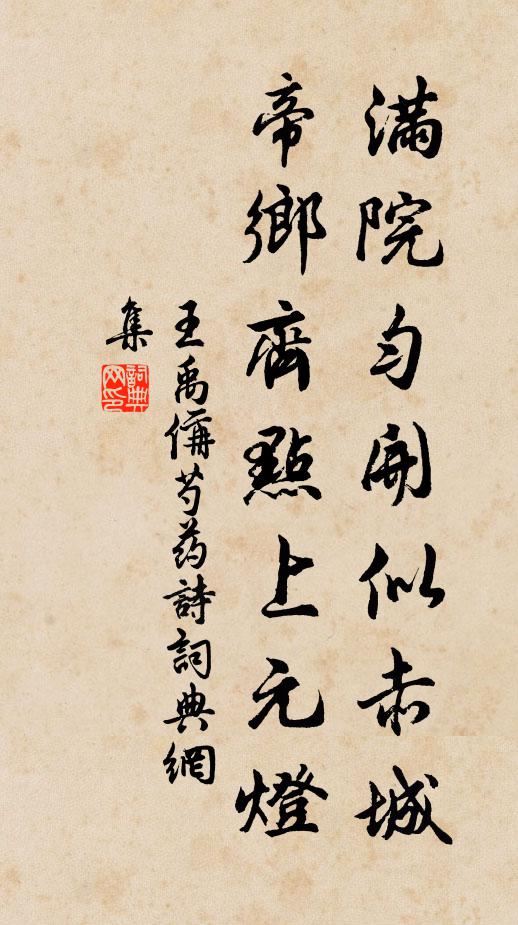 滿院匀開似赤城
帝鄉齊點上元燈
王禹偁芍药詩詞典網
集
詞典網印